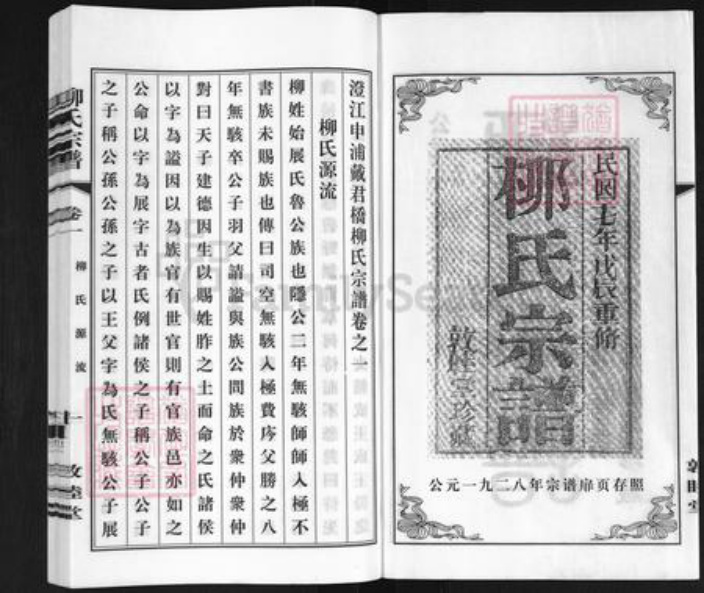 民国十七年戊辰重脩
柳氏宗譜
敦睦堂珍藏
公元一九二八年宗谱扉页存照
澄江申浦戴君橋柳氏宗譜卷之一
柳氏源流
柳姓始展氏魯公族也隱公二年無駭師師入極不
書族未賜族也傳曰司空無駭入極費庈父勝之八
年無駭卒公子羽父請謚與族公問族於衆仲衆仲
對曰天子建德因生以賜姓胙之土而命之氏諸侯
以字為謚因以為族官有世官則有官族邑亦如之
公命以字為展字古者氏例諸侯之子稱公子公子
之子稱公孫公孫之子以王父字為氏無駭公子展
柳氏宗譜
卷一
柳氏源流
一
敦睦堂
FamilySearch